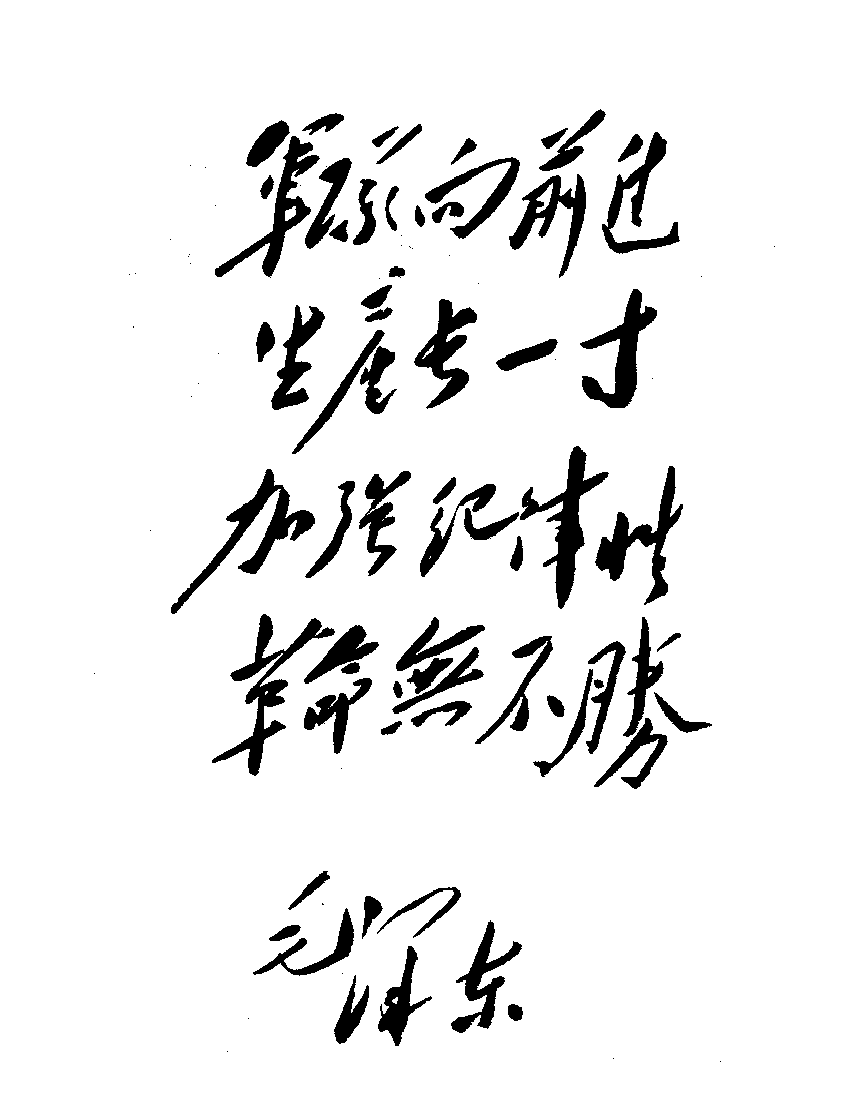 軍隊向前進
生產长一寸
加強紀律性
革命無不勝
毛泽东